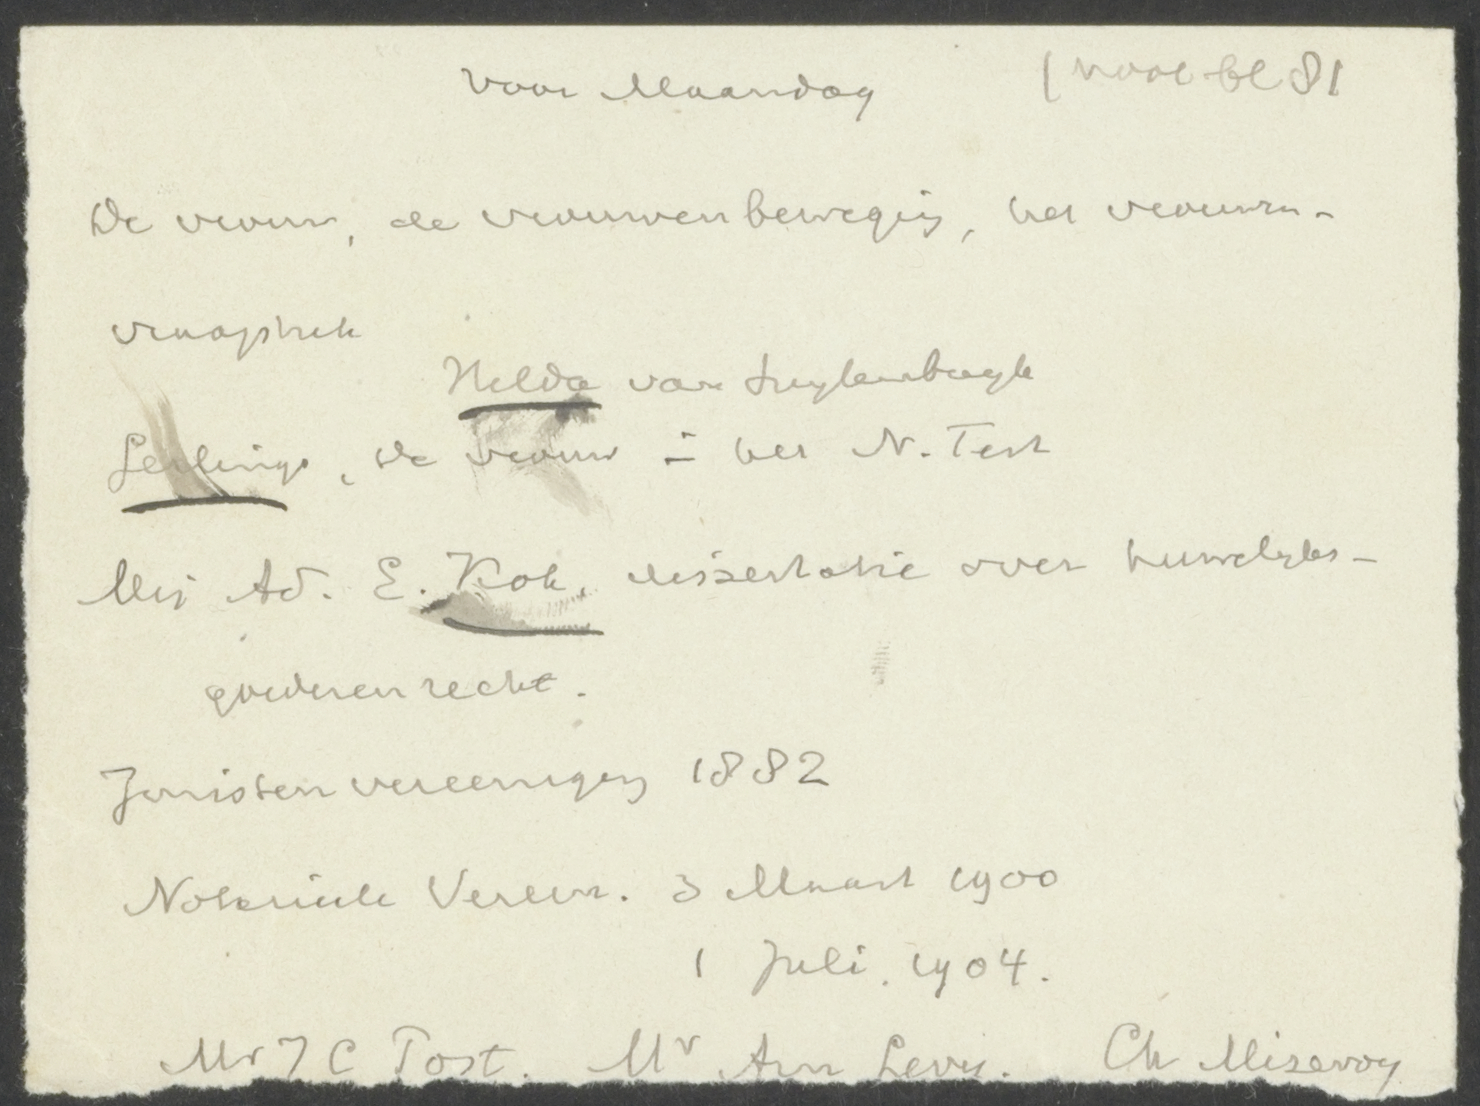 voor Maandag
De vrouw, de vrouwenbeweging, het vrouwen-
vraagstuk
Hilda van Suylenburgh
Leclings, De vrouw in het N. Test
Mej Ad. E. Kok, dissertatie over huwelijks-
goederenrecht.
Juristenvereeniging 1882
Notarieele Vereen. 3 Maart 1900
1 Juli. 1904.
Mr J C Tost. Mr Ann Levy. Ch Miseroy